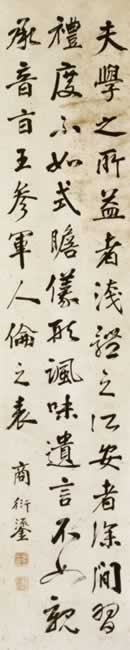 夫學之所益者淺體之所安者深閒習
禮度不如式瞻儀形諷味遺言不如親
承音旨王參軍人倫之表
商衍鎏